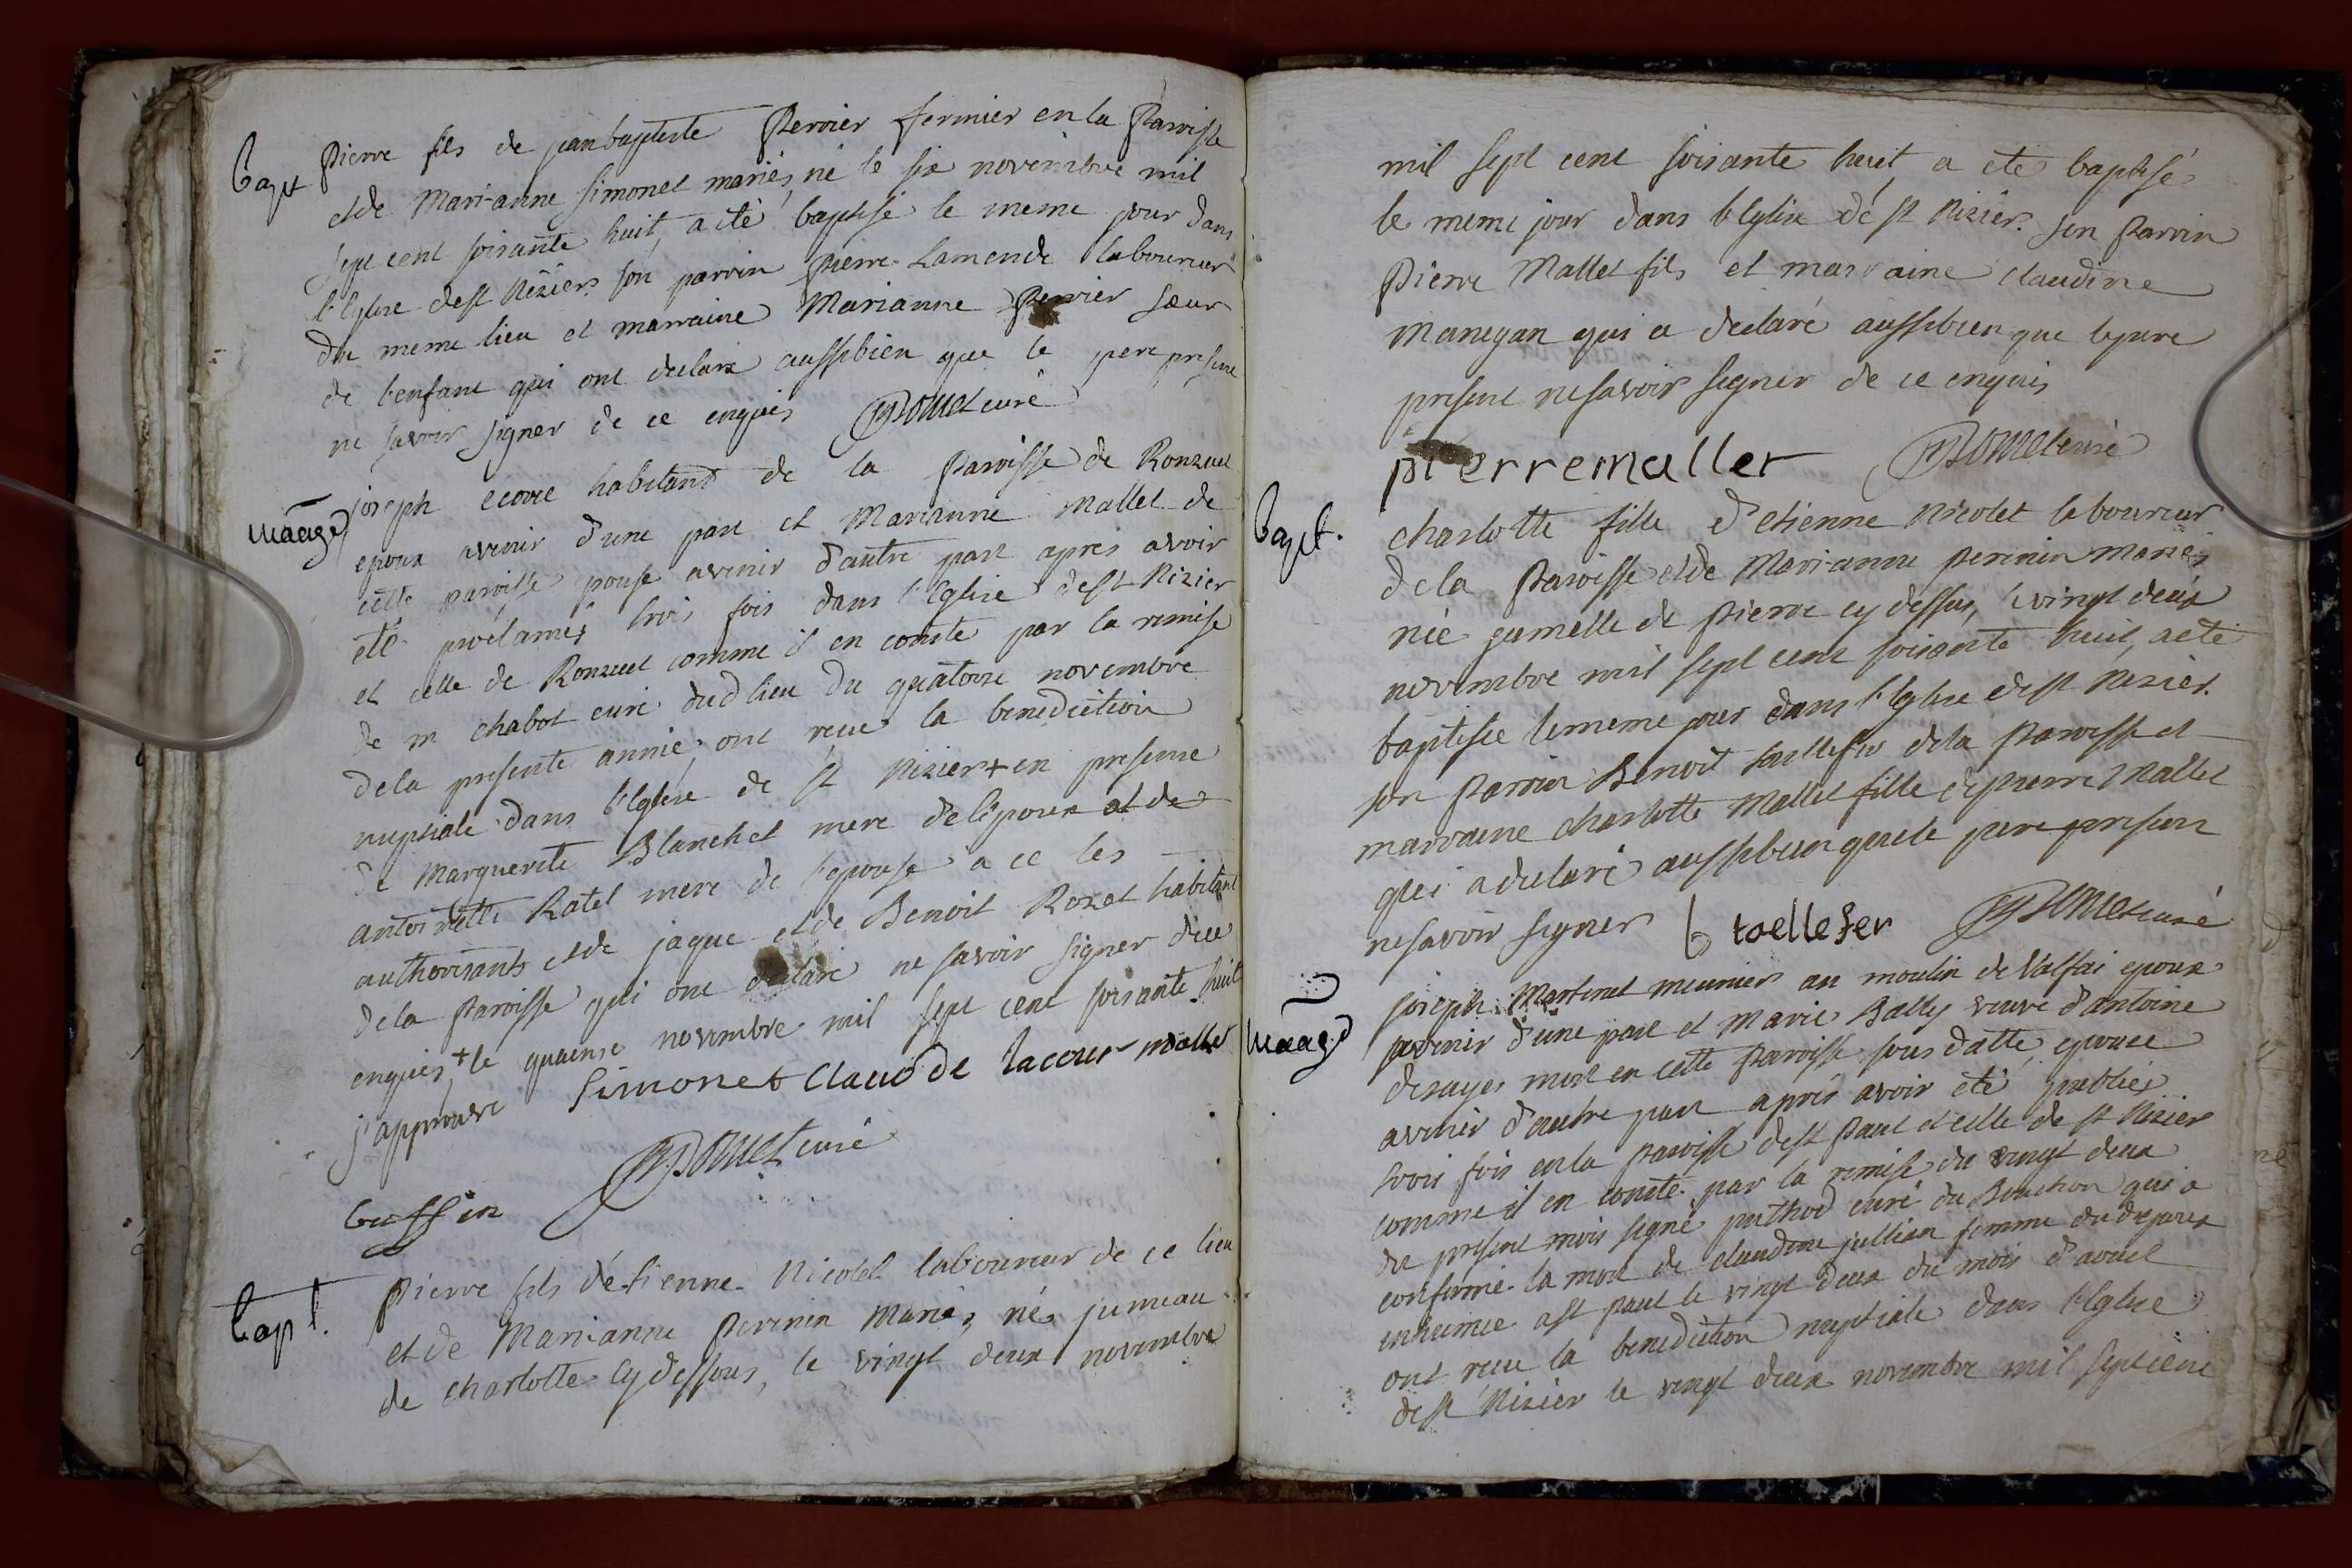 Bapt Pierre fils de jean baptiste Pervier fermier en la Paroisse
et de Mari-anne Simonet mariés, né le six novembre mil
sept cent soixante huit, a été baptisé le meme jour dans
l'Eglise de st Nizier. son parrin pierre Lamende laboureur
du meme lieu et marraine Marianne Pervier sœur
de l'enfant qui ont declaré aussibien que le pere present
ne savoir signer de ce enquis curé
mariage joseph habitant de la Paroisse de Ronzuel
epoux avenir d'une part et Marianne Mallet de
cette paroisse epouse avenir d'autre part apres avoir
été proclamés trois fois dans l'Eglise de st Nizier
et celle de Ronzuel comme il en conste par la remise
de m chabot curé dud lieu du quatorze novembre
de la presente année, ont reçu la benediction
nuptiale dans l'Eglise de st Nizier + en presence
de Marguerite Blanchet mere de l'epoux et de
antoinette Ratel mere de l'epouse a ce les
authorisants et de jaque et de Benoit Rozet habitant
de la Paroisse qui ont declaré ne savoir signer de ce
enquis + le quinze novembre mil sept cent soixante huit
j'approuve Simonet Claude Lacour mallet
curé
buffin
Bapt. Pierre fils d'étienne Nicolet laboureur de ce lieu
et de Mari-anne Perinin Mariés, né jumeau
de charlotte cy dessous, le vingt deux novembre
mil sept cent soixante huit a eté baptisé
le meme jour dans l'Eglise de st Nizier. son Parrin
Pierre Mallet fils et marraine claudine
Manegan qui a declaré aussibien que le pere
present ne savoir signer de ce enquis
pierremallet curé
Bapt. charlotte fille d'etienne Nicolet laboureur
de la Paroisse et de Mari-anne Perinin Mariés
née jumelle de Pierre cy dessus, le vingt deux
novembre mil sept cent soixante huit, a eté
baptisée le meme jour dans l'Eglise de st Nizier.
son Parrin Benoit taillefer de la Paroisse et
marraine charlotte Mallet fille de pierre Mallet
qui a declaré aussibien que le pere present
ne savoir signer b taellefer curé
Mariage joseph Martinet meunier au moulin de Valfai epoux
avenir d'une part et Marie Bally veuve d'antoine
desayes mort en cette Paroisse sous datte epouse
avenir d'autre part après avoir eté publiés
trois fois en la paroisse de st Paul et celle de st Nizier
comme il en conste par la remise du vingt deux
du present mois signé puthod curé du Bouchou qui a
confirmé la mort de claudine jullian femme dud epoux
inhumée a st paul le vingt deux du mois d'avril
ont reçu la benediction nuptiale dans l'Eglise
de st Nizier le vingt deux novembre mil sept cent